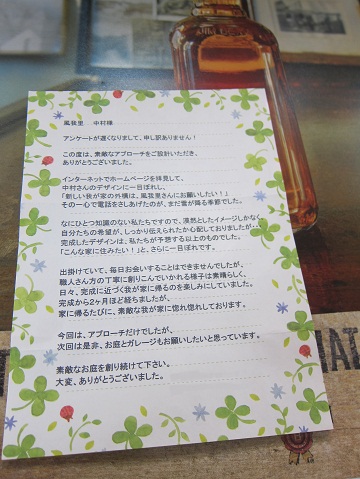 風我里　中村様
アンケートが遅くなりまして、申し訳ありません！
この度は、素敵なアプローチをご設計いただき、
ありがとうございました。
インターネットでホームページを拝見して、
中村さんのデザインに一目ぼれし、
「新しい我が家の外構は、風我里さんにお願いしたい！」
その一心で電話をさしあげたのが、まだ雪が降る季節でした。
なにひとつ知識のない私たちですので、漠然としたイメージしかなく
自分たちの希望が、しっかり伝えられたか心配しておりましたが…
完成したデザインは、私たちが予想する以上のものでした。
「こんな家に住みたい！」と、さらに一目ぼれです。
出掛けていて、毎日お会いすることはできませんでしたが、
職人さん方の丁寧に創りこんでいかれる様子は素晴らしく、
日々、完成に近づく我が家に帰るのを楽しみにしていました。
完成から2ヶ月ほど経ちましたが、
家に帰るたびに、素敵な我が家に惚れ惚れしております。
今回は、アプローチだけでしたが、
次回は是非、お庭とガレージもお願いしたいと思っています。
素敵なお庭を創り続けて下さい。
大変、ありがとうございました。